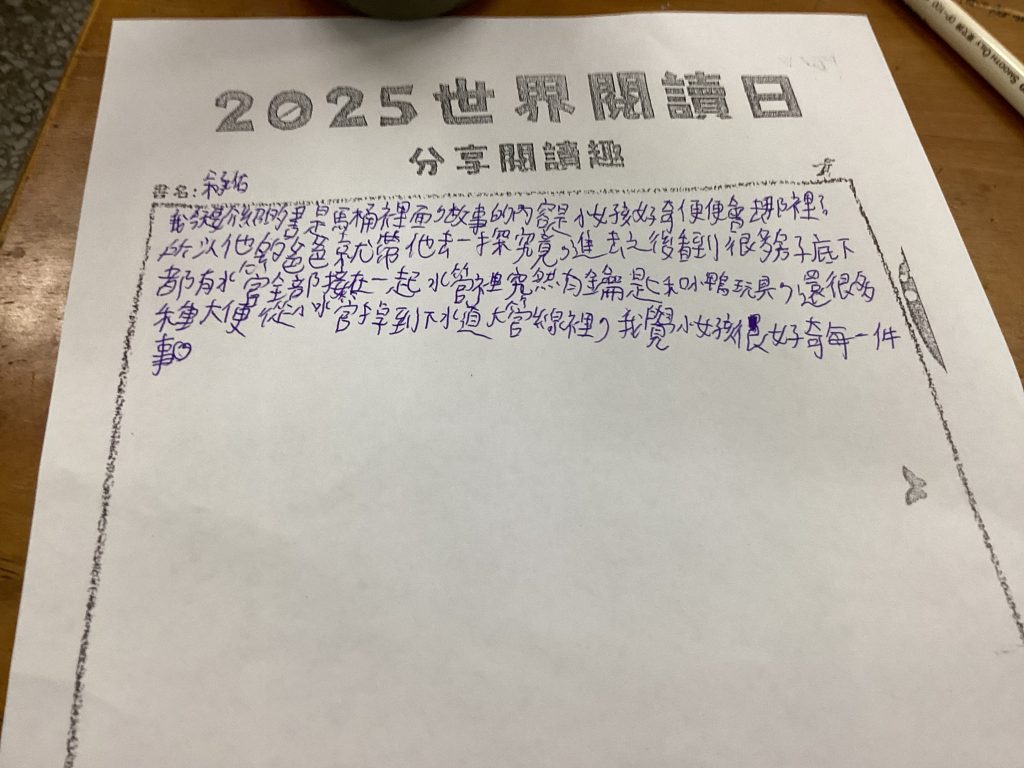 2025世界閱讀日
分享閱讀趣
書名:
我要介紹的書是馬桶裡面,故事的內容是小女孩好奇便便會去那裡?
所以他的爸爸就帶他去一探究竟,進去之後看到很多房子底下
都有水管全部接在一起水管裡竟然有鑰匙和小鴨玩具,還很多
種大便從小水管掉到下水道大管線裡,我覺小女孩很好奇每一件
事。